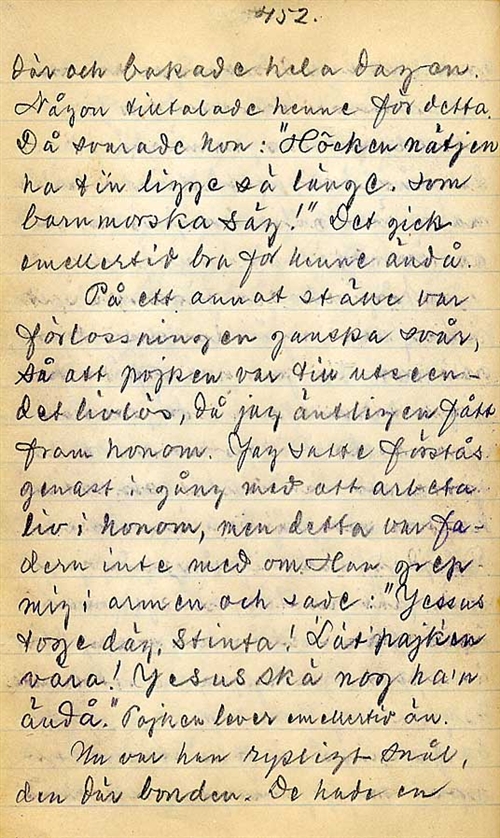 452.
där och bakade hela dagen.
Någon tilltalade henne för detta.
Då svarade hon: "Höcken nätjen
ha tin ligge så länge. som
barnmorska säg!" Det gick
emellertid bra för henne ändå.
På ett annat ställe var
förlossningen ganska svår,
så att pojken var till utseen-
det livlös, då jag äntligen fått
fram honom. Jag satte förstås
genast i gång med att arbeta
liv i honom, men detta var fa-
dern inte med om. Han grep
mig i armen och sade: "Yessus
toge däg, Stinta! Låt pajken
vara! Yesus skå nog ha'n
ändå." Pojken lever emellertid än.
Nu var han rysligt snål,
den där bonden. De hade en